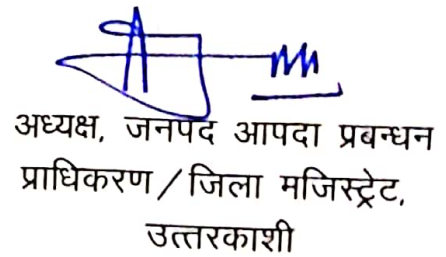 अध्यक्ष, जनपद आपदा प्रबन्धन
प्राधिकरण / जिला मजिस्ट्रेट,
उत्तरकाशी